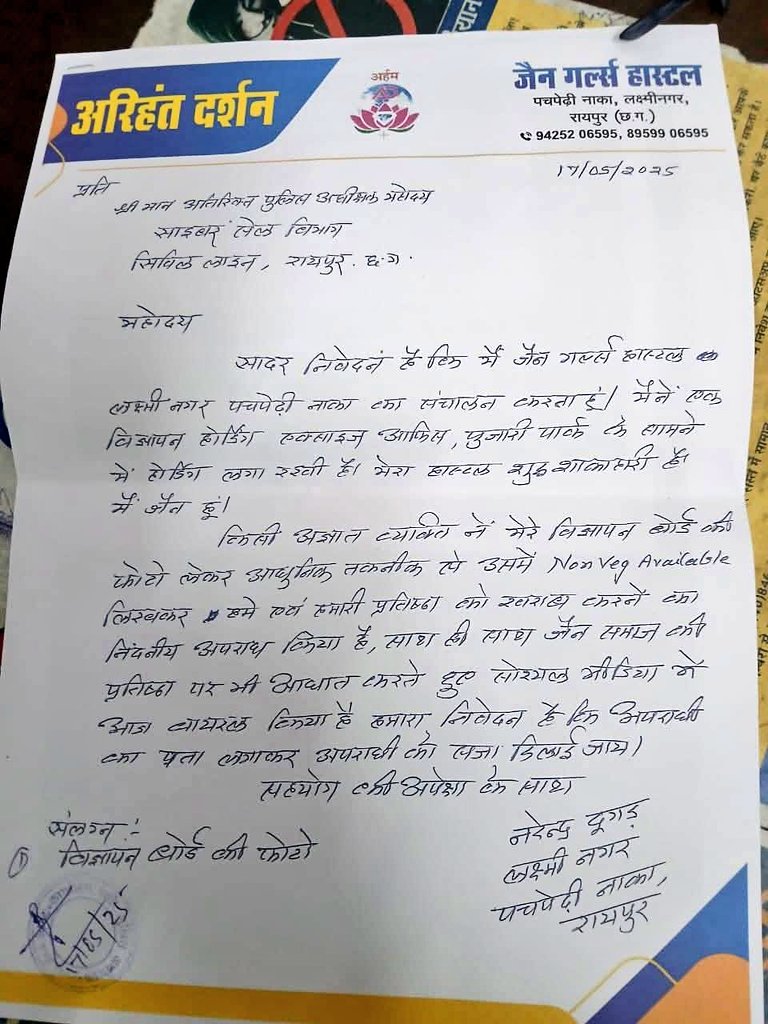 अरिहंत दर्शन
अर्हम
जैन गर्ल्स हास्टल
पचपेढी नाका, लक्ष्मीनगर,
रायपुर (छ.ग.)
94252 06595, 89599 06595
17/05/2025
प्रति
श्री मान अतिरिक्त पुलिस अधीक्षक महोदय
साइबर सेल विभाग
सिविल लाइन, रायपुर. छ.ग.
महोदय
सादर निवेदन है कि मैं जैन गर्ल्स हास्टल
लक्ष्मी नगर पचपेढी नाका का संचालन करता हूं। मैनें एक
विज्ञापन होर्डिंग एक्साइज आफिस, पुजारी पार्क के सामने
में होर्डिंग लगा रखी है। मेरा हास्टल शुद्ध शाकाहारी है।
मैं जैन हूं।
किसी अज्ञात व्यक्ति नें मेरे विज्ञापन बोर्ड की
फोटो लेकर आधुनिक तकनीक से उसमें Non Veg Available
लिखकर हमे एवं हमारी प्रतिष्ठा को खराब करने का
निंदनीय अपराध किया है, साथ ही साथ जैन समाज की
प्रतिष्ठा पर भी आघात करते हुए सोश्यल मीडिया में
आज वायरल किया है हमारा निवेदन है कि अपराधी
का पता लगाकर अपराधी को सजा दिलाई जाय।
सहयोग की अपेक्षा के साथ
संलग्न :-
① विज्ञापन बोर्ड की फोटो
नरेन्द्र दूगड़
लक्ष्मी नगर
पचपेढी नाका,
रायपुर
17/05/25